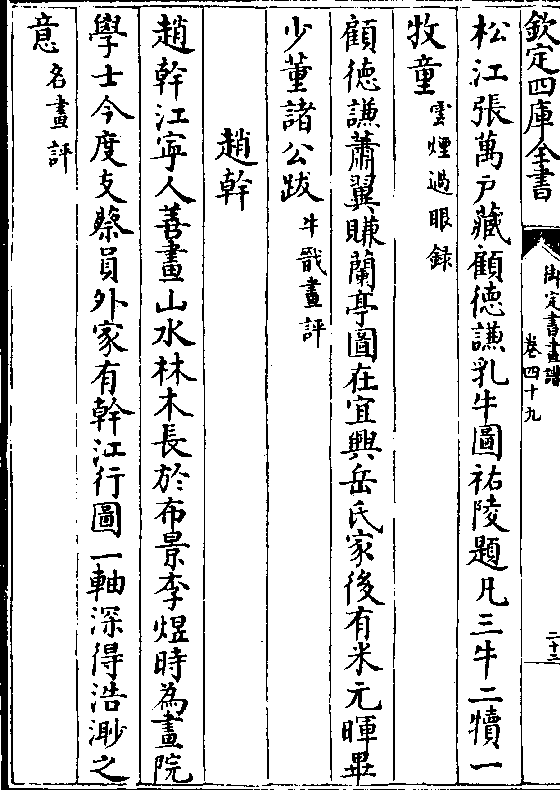 欽定四庫全書
御定書畫譜
卷四十九
二十三
松江張萬戶藏顧德謙乳牛圖祐陵題凡三牛二犢一
牧童雲煙過眼録
顧德謙蕭翼賺蘭亭圖在宜興岳氏家後有米元暉畢
少董諸公跋牛戩畫評
趙幹
趙幹江寧人善畫山水林木長於布景李煜時為畫院
學士今度支蔡員外家有幹江行圖一軸深得浩渺之
意名畫評